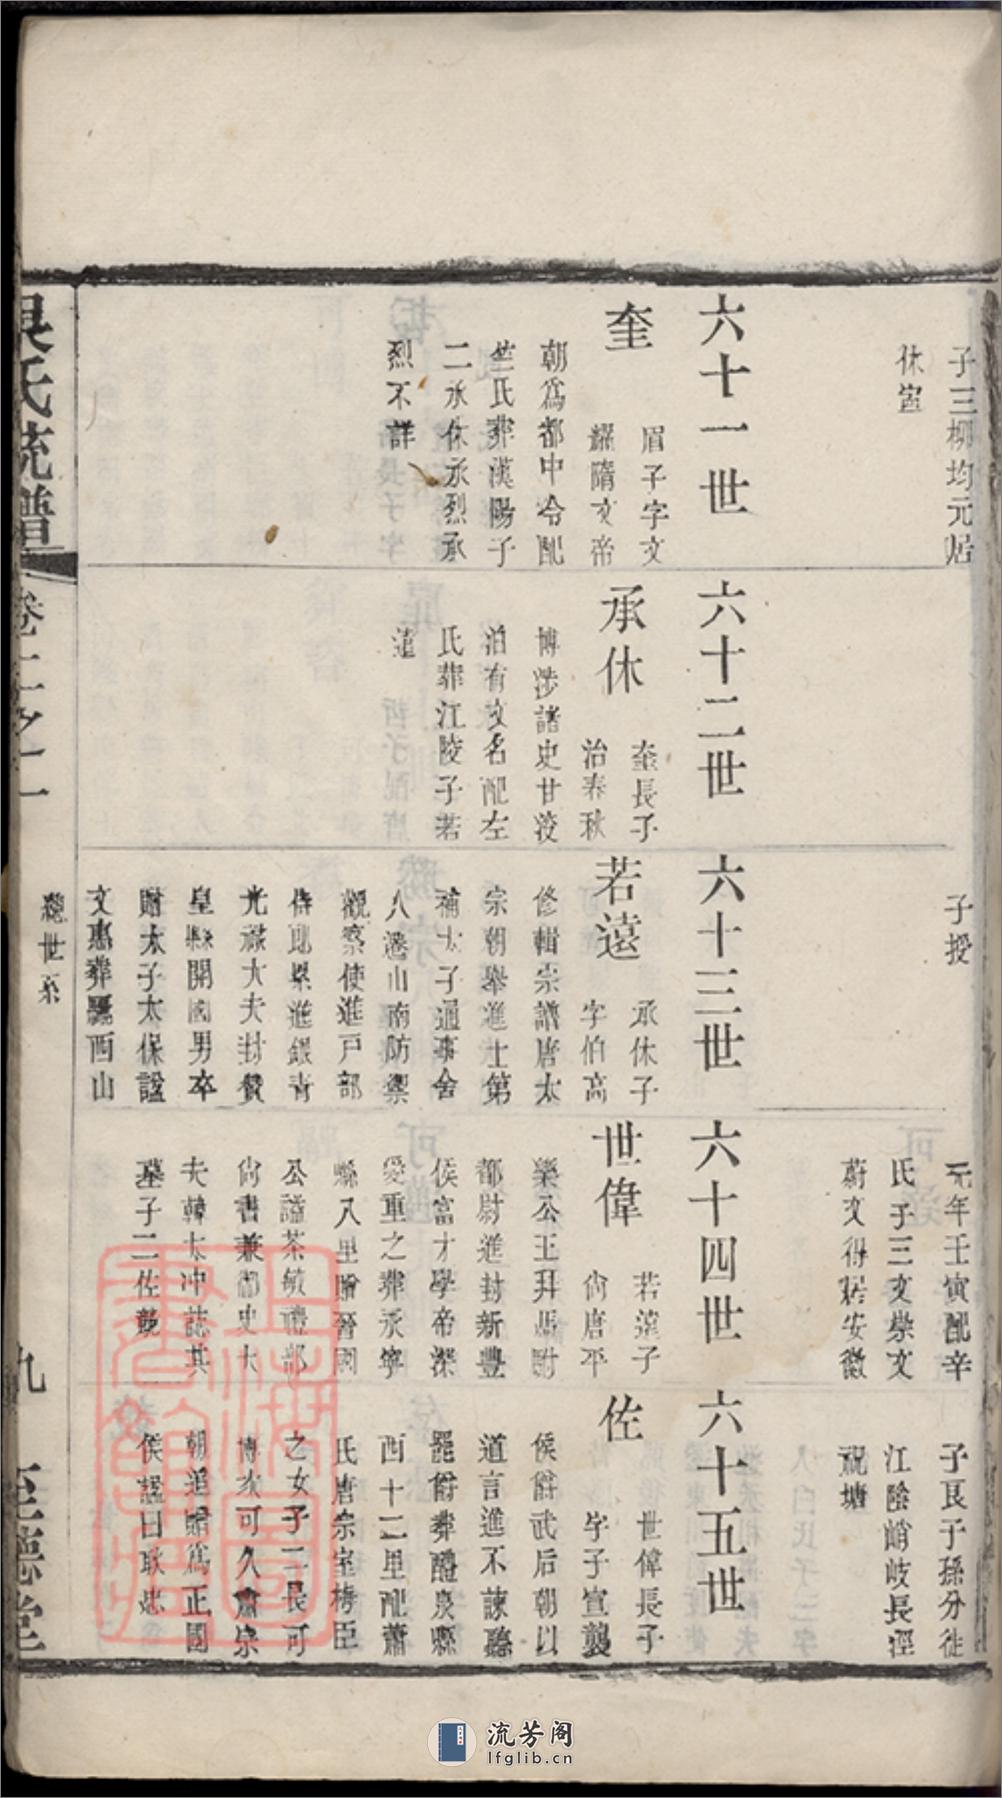 子三柳均元居
休宣
六十一世
奎
眉子字文
繼隋文帝
朝爲都中令配
竺氏葬漢陽子
二承休承烈承
烈不詳
六十二世
承休
奎長子
治春秋
博涉諸史甘淡
泊有文名配左
氏葬江陵子若
遠
子授
六十三世
若遠
承休子
字伯高
修輯宗譜唐太
宗朝舉進士第
補太子通事舍
人遷山南防禦
觀察使進戸部
侍郎累進銀青
光祿大夫封贊
皇縣開國男卒
贈太子太保諡
文惠葬驪西山
元年壬寅配辛
氏子三文崇文
蔚文得居安徽
六十四世
世偉
若遠子
尚唐平
樂公主拜馬駙
都尉進封新豐
侯富才學帝深
愛重之葬承寧
縣八里贈晉國
公諡茶敏禮部
尚書兼御史大
夫韓太冲誌其
墓子二佐兢
子良子孫分徙
江陰峭岐長涇
祝塘
六十五世
佐
世偉長子
字子宣襲
侯爵武后朝以
道言進不諫聽
罷爵葬醴泉縣
西十二里配蕭
氏唐宗室梅臣
之女子二長可
博次可久肅宗
朝追贈爲正國
侯諡曰耿忠
吳氏統譜
卷二之二
總世系
九
至德堂
上海圖書館藏
流芳阁
lfglib.cn